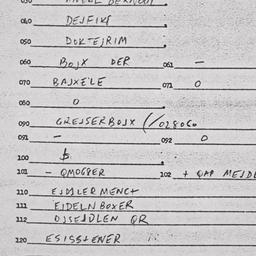 040 DEJFIKS
050 DOKTEJRIM
060 BOJX DER 061 —
070 BAJXELE 071 0
080 0
090 GREJSERBOJX (/028060
091 — 092 0
100 $
101 - QMOGGER 102 + QAP MEJDE
110 EJDLERMENCH
111 EJDELNBOXER
112 OJSEJDLEN QR
120 ESISSTENER